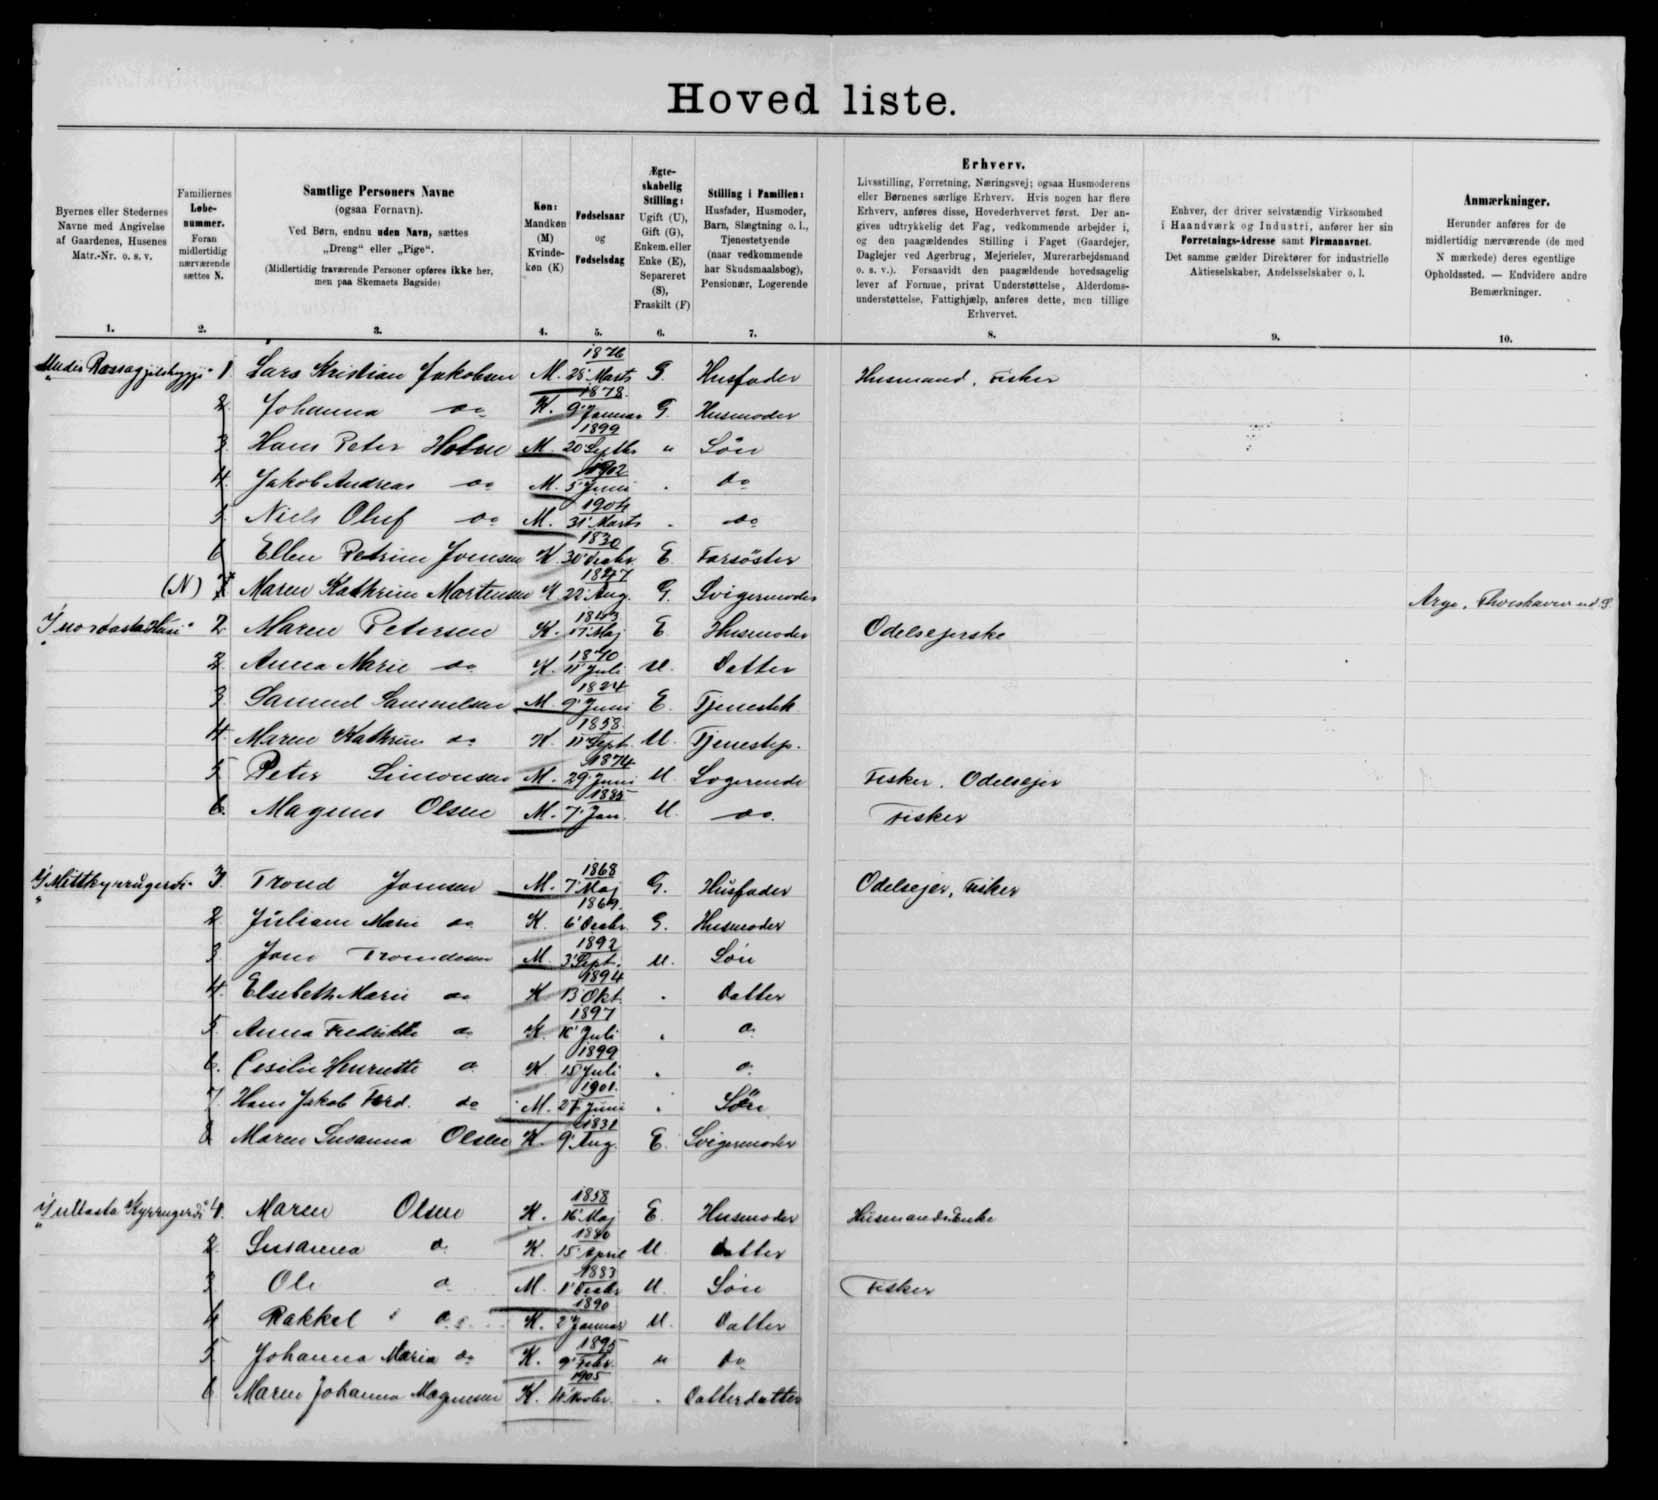 Hoved liste.
Byernes eller Stedernes
Navne med Angivelse
af Gaardenes, Husenes
Matr.-Nr. o. s. v.
1.
Familiernes
Løbe-
nummer.
Foran
midlertidig
nærværende
sættes N.
2.
Samtlige Personers Navne
(ogsaa Fornavn).
Ved Børn, endnu uden Navn, sættes
„Dreng“ eller „Pige“.
(Midlertidig fraværende Personer opføres ikke her,
men paa Skemaets Bagside)
3.
Køn:
Mandkøn
(M)
Kvinde-
køn (K)
4.
Fødselsaar
og
Fødselsdag
5.
Ægte-
skabelig
Stilling:
Ugift (U),
Gift (G),
Enkem. eller
Enke (E),
Separeret
(S),
Fraskilt (F)
6.
Stilling i Familien:
Husfader, Husmoder,
Barn, Slægtning o. l.,
Tjenestetyende
(naar vedkommende
har Skudsmaalsbog),
Pensionær, Logerende
7.
Erhverv.
Livsstilling, Forretning, Næringsvej; ogsaa Husmoderens
eller Børnenes særlige Erhverv. Hvis nogen har flere
Erhverv, anføres disse, Hovederhvervet først. Der an-
gives udtrykkelig det Fag, vedkommende arbejder i,
og den paagældendes Stilling i Faget (Gaardejer,
Daglejer ved Agerbrug, Mejerielev, Murerarbejdsmand
o. s. v.). Forsaavidt den paagældende hovedsagelig
lever af Formue, privat Understøttelse, Alderdoms-
understøttelse, Fattighjælp, anføres dette, men tillige
Erhvervet.
8.
Enhver, der driver selvstændig Virksomhed
i Haandværk og Industri, anfører her sin
Forretnings-Adresse samt Firmanavnet.
Det samme gælder Direktører for industrielle
Aktieselskaber, Andelsselskaber o. l.
9.
Anmærkninger.
Herunder anføres for de
midlertidig nærværende (de med
N mærkede) deres egentlige
Opholdssted. — Endvidere andre
Bemærkninger.
10.
1 Lars Kristian Jakobsen M. 1876 28' Marts G. Husfader Husmand, Fisker
2 Johanna do K. 1878 9' Januar G. Husmoder
3 Hans Peter Holm M. 1899 20' Septbr " Søn
4 Jakob Andreas do M. 1902 5' Juni " do
5 Niels Oluf do M. 1904 31' Marts " do
6 Ellen Petrine Joensen K. 1830 30' Decbr. E. Farsöster
(N) 7 Maren Kathrine Mortensen K 1847 22' Aug. G. Svigermoder Arge, Thorshavn
2. Maren Petersen K. 1843 17' Maj E Husmoder Odelsejerske
2. Anna Marie do K. 1870 11' Juli U. Datter
3. Samuel Samuelsen M. 1824 9' Juni E. Tjenestek
4. Maren Kathrine do K. 1858 11' Sept. U. Tjenestep.
5. Peter Simonsen M. 1874 29' Juni U. Logerende Fisker, Odelsejer
6. Magnus Olsen M. 1885 7' Jan. U. do. Fisker
3. Trond Joensen M. 1868 7' Maj G. Husfader Odelsejer, Fisker
2. Juliane Marie do K. 1869. 6' Decbr. G. Husmoder
3 Joen Trondesen M. 1892 3' Sept. U. Søn
4. Elsebeth Marie do K 1894 13' Okt. " Datter
5. Anna Fredrikke do K. 1897 16' Juli " do
6. Cesilie Henriette do K 1899 15' Juli " do
7. Hans Jakob Ferd. do M. 1901. 27' Juni " Søn
8 Maren Susanna Olsen K. 1831 9' Aug. E. Svigermoder
4. Maren Olsen K. 1858 16' Maj E. Husmoder Husmandsenke
2. Susanna do K. 1880 15' April U. Datter
3. Ole do M. 1883 1' Decbr U. Søn Fisker
4 Rakkel do K. 1890 2' Januar U. Datter
5. Johanna Maria do K. 1895 9' Febr. " do
6 Maren Johanna Magnusen K. 1905 Datterdatter